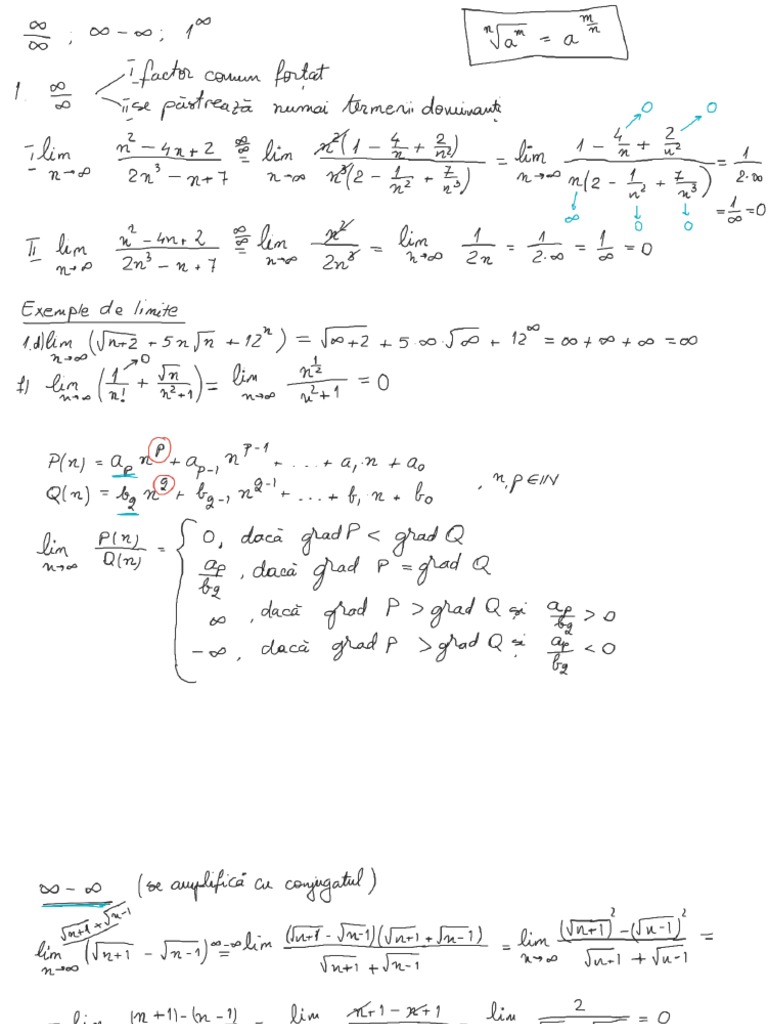 ∞/∞ ; ∞ - ∞ ; 1^∞
ⁿ√(a^m) = a^(m/n)
1. ∞/∞ I factor comun forțat
II se păstrează numai termenii dominanți
I lim n→∞ (n² - 4n + 2)/(2n³ - n + 7) =^(∞/∞) lim n→∞ n²(1 - 4/n + 2/n²)/(n³(2 - 1/n² + 7/n³)) = lim n→∞ (1 - 4/n + 2/n²)/(n(2 - 1/n² + 7/n³)) = 1/(2·∞)
0 0 ∞ 0 0
= 1/∞ = 0
II lim n→∞ (n² - 4n + 2)/(2n³ - n + 7) =^(∞/∞) lim n→∞ n²/(2n³) = lim n→∞ 1/(2n) = 1/(2·∞) = 1/∞ = 0
Exemple de limite
1.d) lim n→∞ (√(n+2) + 5n√n + 12^n) = √(∞+2) + 5·∞·√∞ + 12^∞ = ∞ + ∞ + ∞ = ∞
f) lim n→∞ (1/n! →0 + √n/(n²+1)) = lim n→∞ n^(1/2)/(n²+1) = 0
P(n) = a_p n^p + a_(p-1) n^(p-1) + ... + a₁·n + a₀
Q(n) = b_q n^q + b_(q-1) n^(q-1) + ... + b₁ n + b₀ , n,p∈ℕ
lim n→∞ P(n)/Q(n) = { 0, dacă grad P < grad Q
a_p/b_q , dacă grad P = grad Q
∞ , dacă grad P > grad Q și a_p/b_q > 0
-∞, dacă grad P > grad Q și a_p/b_q < 0
∞ - ∞ (se amplifică cu conjugatul)
√(n+1) + √(n-1)
lim n→∞ (√(n+1) - √(n-1)) =^(∞-∞) lim (√(n+1) - √(n-1))(√(n+1) + √(n-1))/(√(n+1) + √(n-1)) = lim n→∞ ((√(n+1))² - (√(n-1))²)/(√(n+1) + √(n-1)) =
= lim (n+1)-(n-1) = lim n+1-n+1 = lim 2 = 0